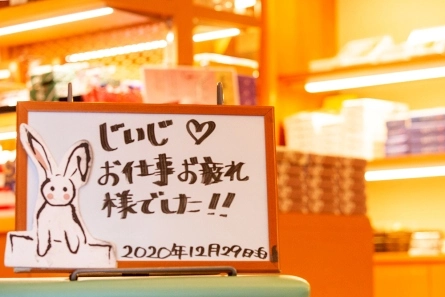 じぃじ♡
お仕事お疲れ
様でした!!
2020年12月29日吉